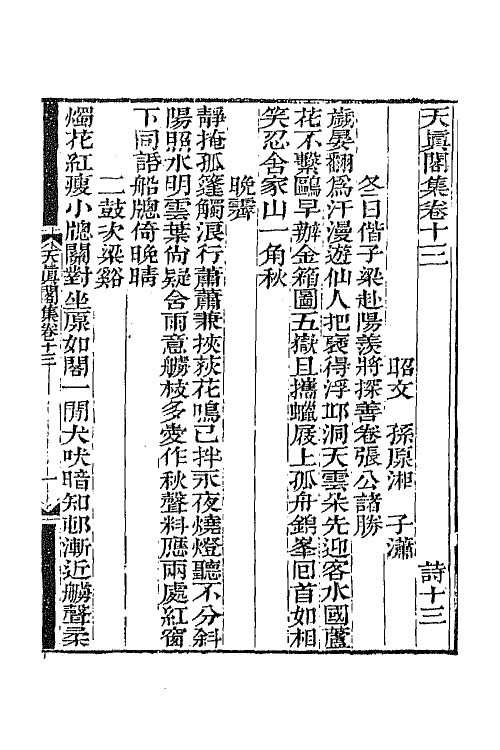 天眞閣集卷十三　　　　　　詩十三
昭文　孫原湘　子瀟
冬日偕子梁赴陽羨將探善卷張公諸勝
歲晏翻爲汗漫遊仙人把褎得浮邱洞天雲朵先迎客水國蘆
花不繫鷗早辦金箱圖五嶽且攜蠟屐上孤舟鵁峯囘首如相
笑忍舍家山一角秋
晚霽
靜掩孤篷觸浪行蕭蕭兼挾荻花鳴已拌永夜燒燈聽不分斜
陽照水明雲葉尙疑含雨意艣枝多愛作秋聲料應兩處紅窗
下同語船牕倚晚晴
二鼓次梁谿
燭花紅瘦小牕關對坐原如閣一閒犬吠暗知邨漸近艣聲柔
天眞閣集卷十三
一